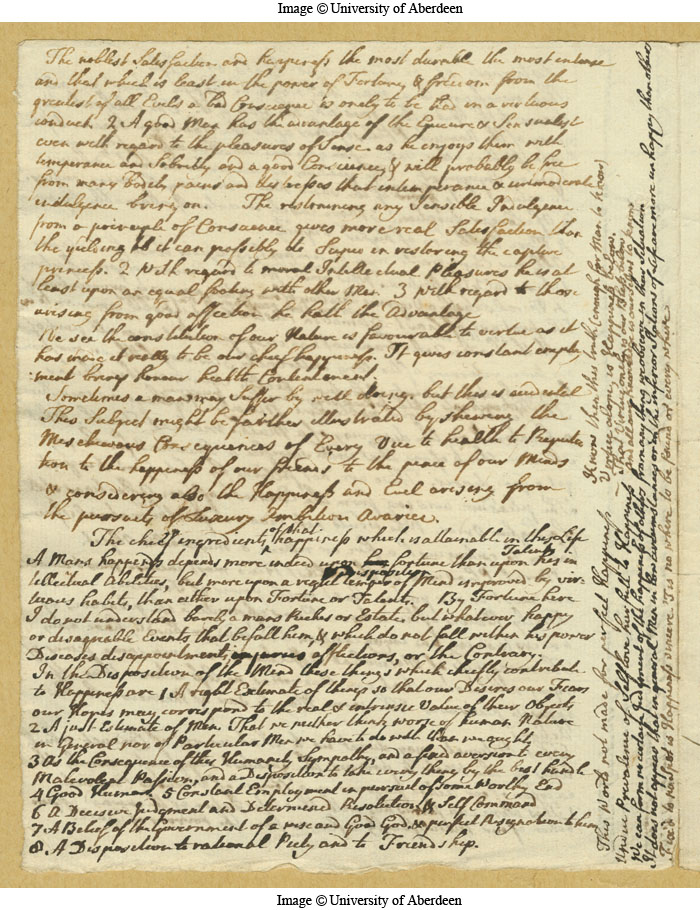 Image © University of Aberdeen
The noblest Satisfaction and happiness the most durable the most intense
and that which is least in the power of Fortune & freedom from the
greatest of all Evils a bad Conscience is onely to be had in a virtuous
conduct 2 A good Man has the advantage of the Epicure & Sensualist
even with regard to the pleasures of Sense as he enjoys them with
temperance and Sobriety and a good Conscience, & will probably be free
from many bodily pains and distresses that intemperance & immoderate
indulgence bring on. The restraining any Sensible Indulgence
from a principle of Conscience gives more real Satisfaction than
the yielding to it can possibly do Scipio in restoring the captive
princess. 2 With regard to moral Intellectual Pleasures he is at
least upon an equal footing with other Men 3 With regard to those
arising from good affection he hath the Advantage
We see the constitution of our Nature is favourable to virtue as it
has made it really to be our chief happiness. It gives constant employ
ment brings honour health Contentment.
Sometimes a man may Suffer by well doing. but this is accidental
This Subject might be farther illustrated by shewing the
Mischievous Consequences of Every Vice to health to Reputa
tion to the happiness of our friends to the peace of our Minds
& considering also the Happiness and Evil arising from
the pursuits of Luxury Ambition Avarice.
The chief ingredients of that happiness which is attainable in this Life
A Mans happiness depends more indeed upon fortune than upon his in
Talents
tellectual Abilities, but more upon a right temper of Mind improved by vir
Disposition
tuous habits, than either upon Fortune or Talents. By Fortune here
I do not understand barely a mans Riches or Estate but whatever happy
or disagreable Events that befall him, & which do not fall within his power
Diseases disappointments injuries afflictions, or the Contrary.
In the Disposition of the Mind these things which chiefly contribute
to Happiness are 1 A right Estimate of things so that our Desires our Fears
our Hopes may correspond to the real & intrinsic Value of their Objects
2 A just Estimate of Men. That we neither think worse of human Nature
in General nor of Particular Men we have to do with than we ought
3 As the Consequence of this Humanity Sympathy, and a fixed aversion to every
Malevolent Passion, and a Disposition to take every thing by the best handle
4 Good Humour, 5 Constant Employment in pursuit of Some Worthy End
6 A Decisive Judgment and Determined Resolution & Self Command
7 A Belief of the Government of a wise and Good God & a perfect Resignation to him
8 A Disposition to rational Piety and to Friendship.
Know then this truth (enough for Man to know)
Virtue alone, is Happiness below.
This World not made for perfect Happiness
Undue Prevalence of Self love hurtfull to Happiness
We can form no certain Judgment of the happiness of others from any thing we observe in their Situation
It does not appear that in general Men in low circumstances or in the inferior Stations of life are more unhappy than others
Fixd to no spot is Happiness sincere Tis no where to be found or every where
Image © University of Aberdeen